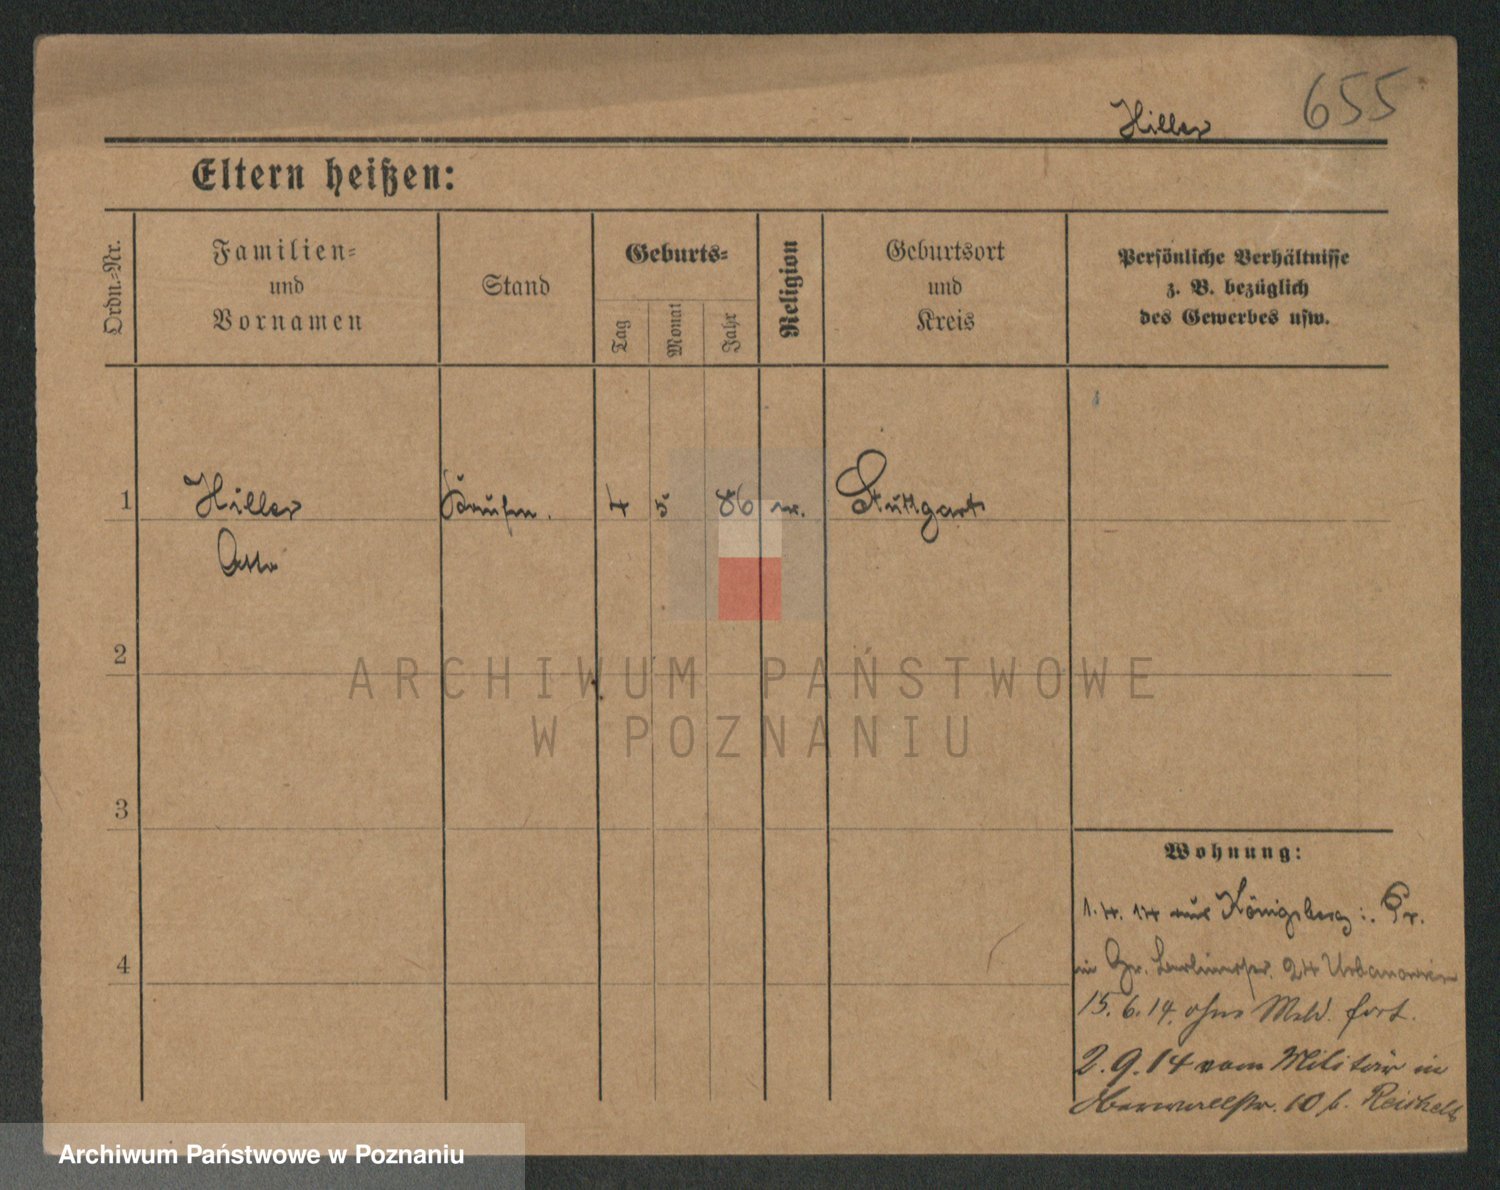 655
Hiller
Eltern heißen:
Ordn.-Nr.
Familien- und Vornamen
Stand
Geburts-
Tag
Monat
Jahr
Religion
Geburtsort und Kreis
Persönliche Verhältnisse z. B. bezüglich des Gewerbes usw.
1 Hiller Kaufm. 4 5 86 ev. Stuttgart
Otto
2
3
4
Wohnung:
1.4.14 aus Königsberg i. Pr.
in Gr. Berlinerstr. 24 Urbanowicz
15.6.14. ohne Meld. fort.
2.9.14 vom Militär in
10 b. Reichelt
ARCHIWUM PAŃSTWOWE
W POZNANIU
Archiwum Państwowe w Poznaniu